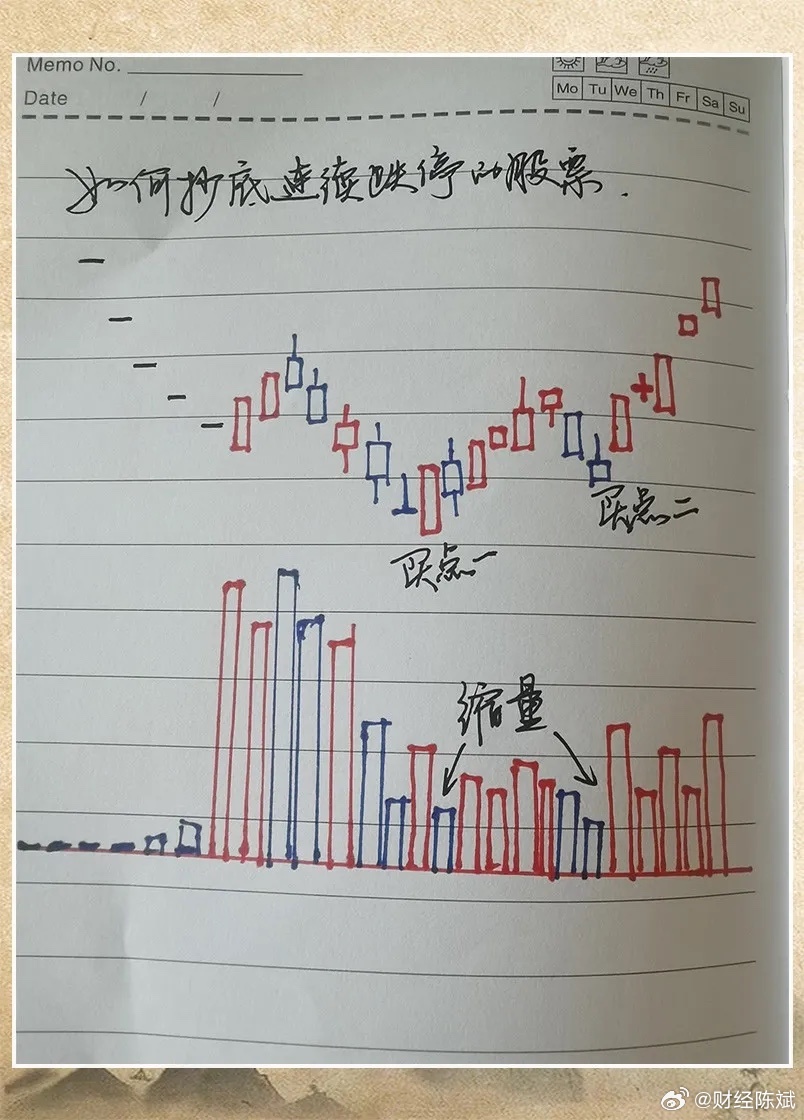 Memo No.
Date / /
Mo Tu We Th Fr Sa Su
如何抄底连续跌停的股票.
买点二
买点一
缩量
@财经陈斌